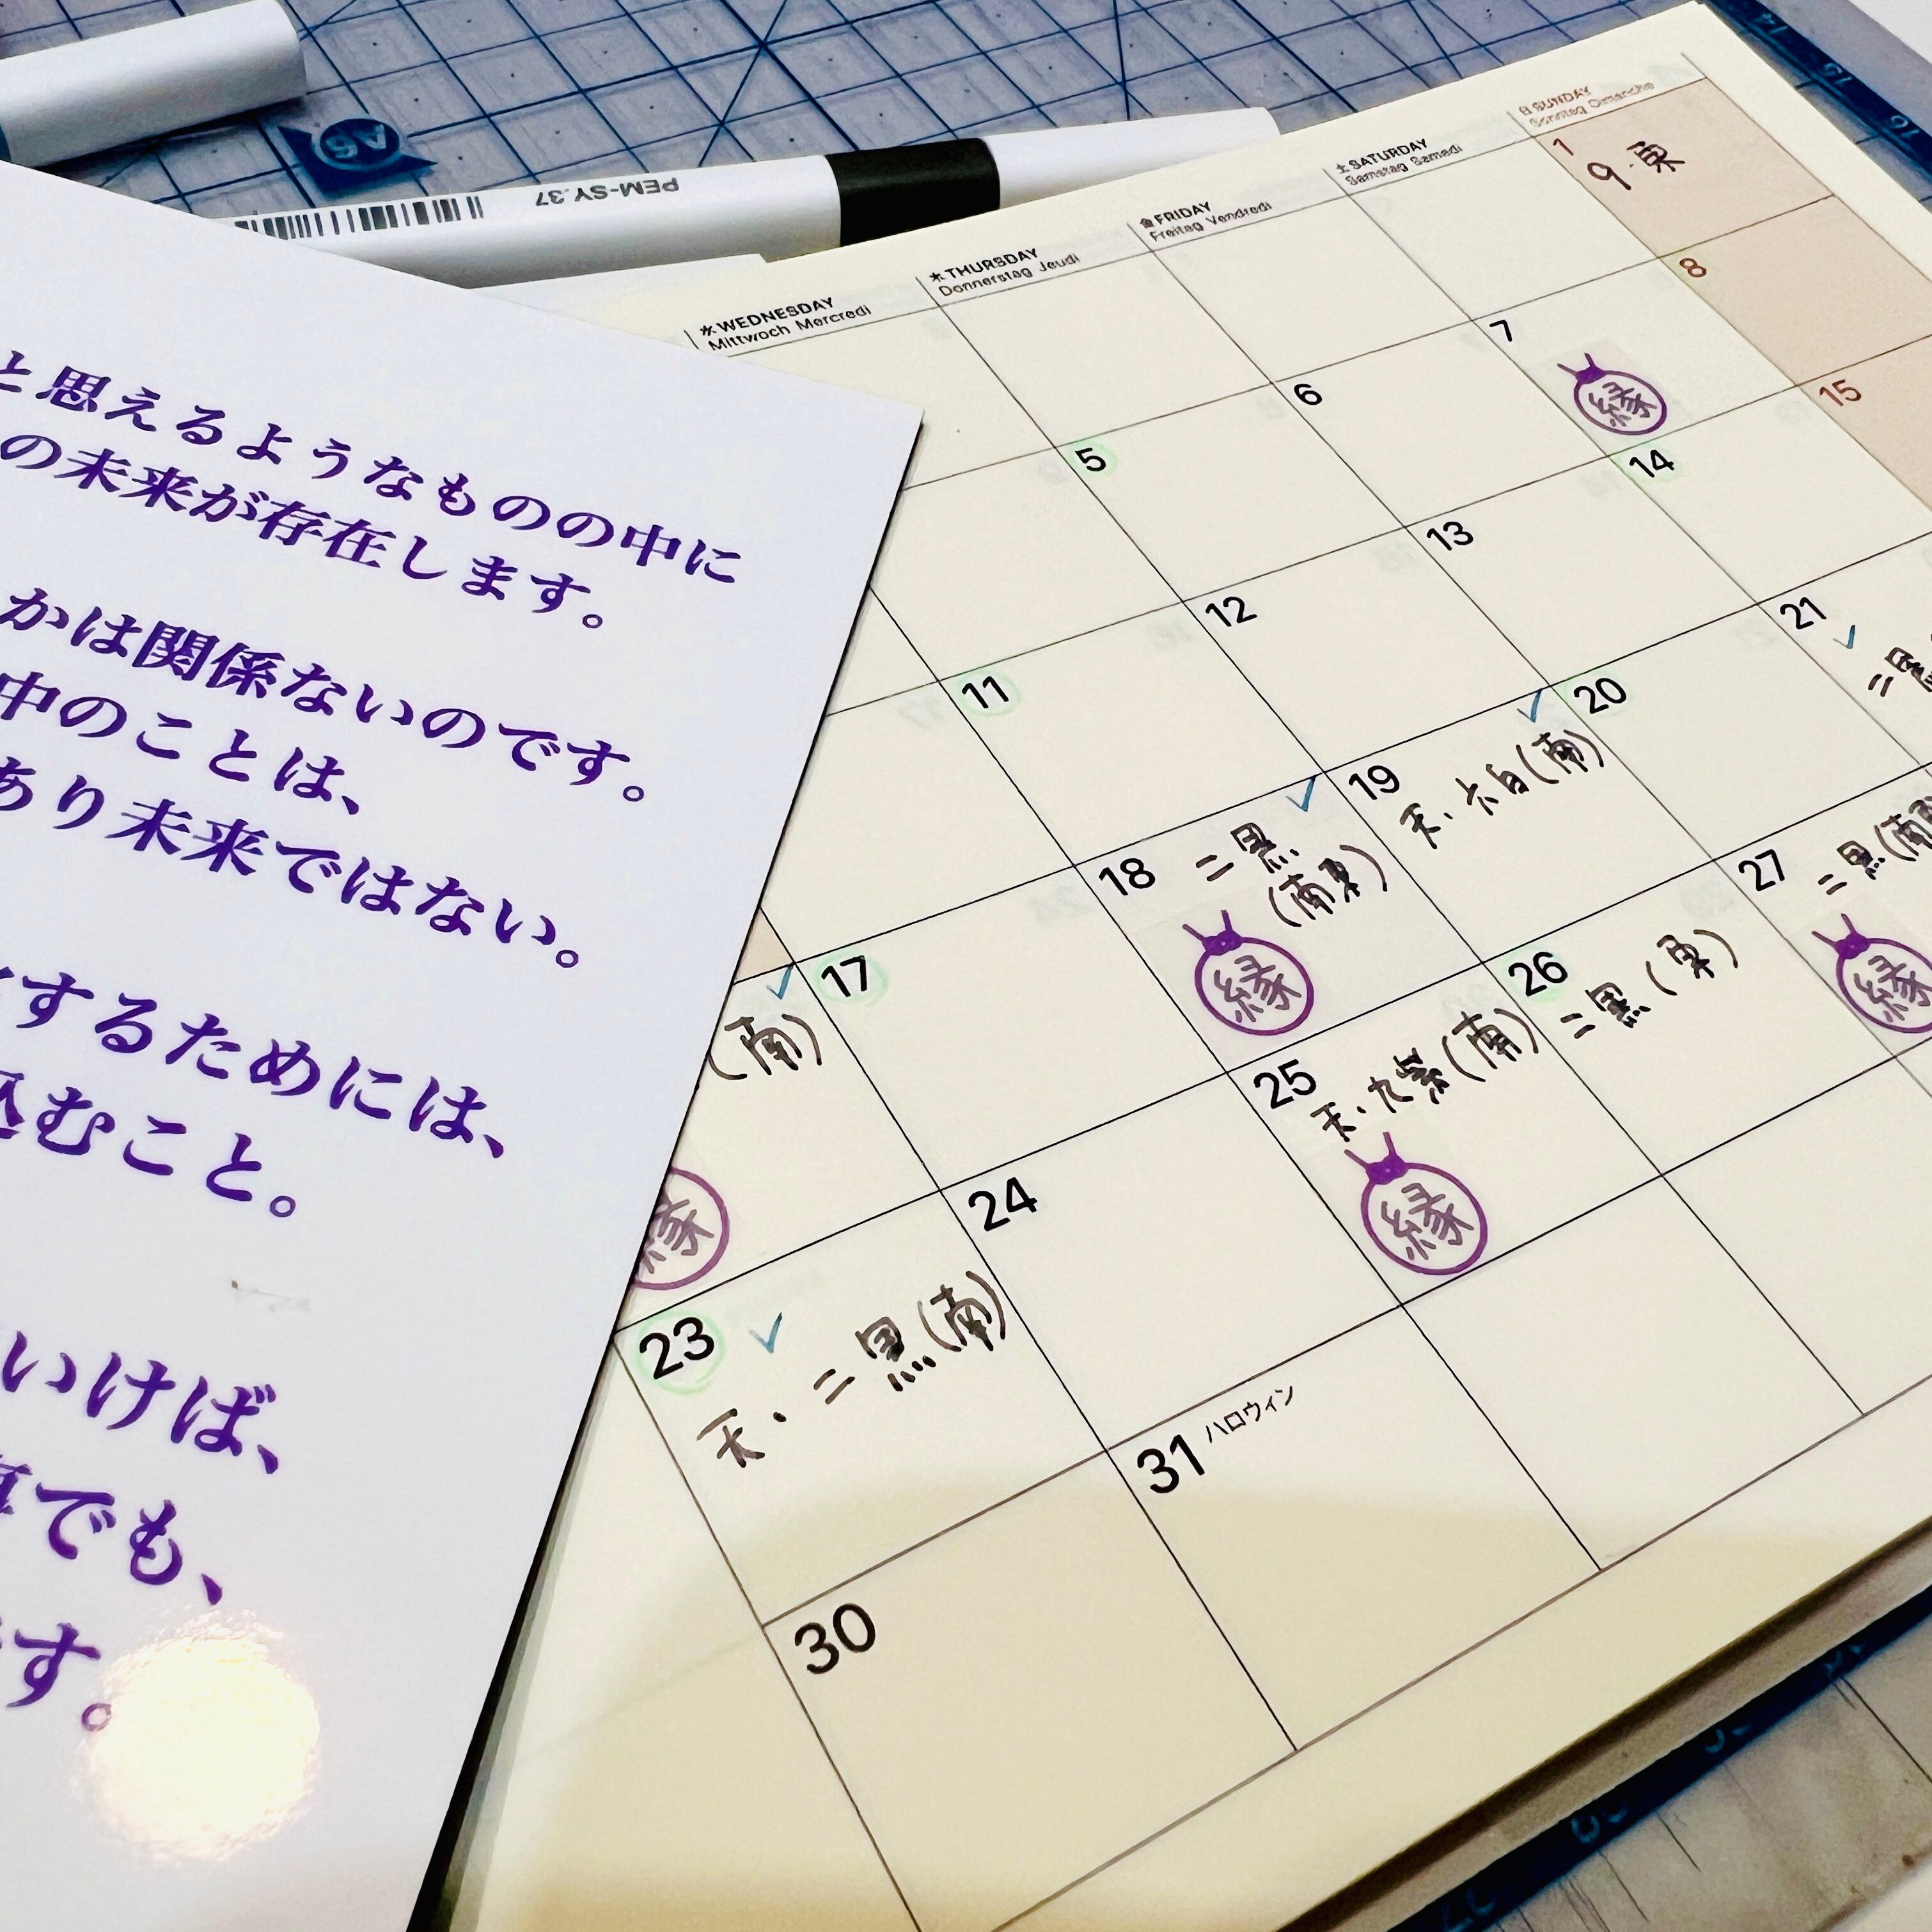 と思えるようなものの中に
の未来が存在します。
かは関係ないのです。
中のことは、
あり未来ではない。
するためには、
込むこと。
いけば、
でも、
す。
A5
PEM-SY.37
水 WEDNESDAY
Mittwoch Mercredi
木 THURSDAY
Donnerstag Jeudi
金 FRIDAY
Freitag Vendredi
土 SATURDAY
Samstag Samedi
日 SUNDAY
Sonntag Dimanche
1
9・東
5
6
7
縁
8
11
12
13
14
15
(南)
縁
17
18
二黒
(南東)
縁
19
天、六白(南)
20
21
二黒
23
天、二黒(南)
24
25
天、九紫(南)
縁
26
二黒(東)
27
二黒(南
縁
30
31 ハロウィン